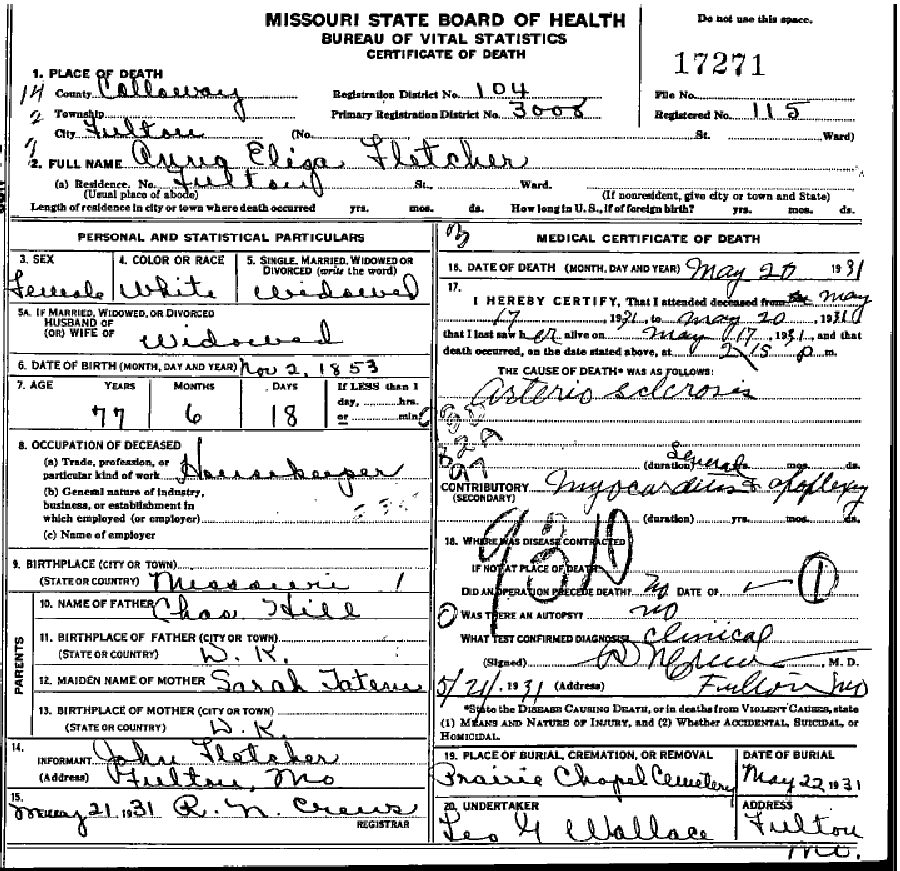 MISSOURI STATE BOARD OF HEALTH
BUREAU OF VITAL STATISTICS
CERTIFICATE OF DEATH
Do not use this space.
17271
1. PLACE OF DEATH
14 County Calloway Registration District No. 104 File No.
2 Township Primary Registration District No. 3008 Registered No. 115
City Fulton (No. St. Ward)
2. FULL NAME Anna Eliza Fletcher
(a) Residence. No. Fulton St., Ward.
(Usual place of abode) (If nonresident, give city or town and State)
Length of residence in city or town where death occurred yrs. mos. ds. How long in U. S., if of foreign birth? yrs. mos. ds.
PERSONAL AND STATISTICAL PARTICULARS
3. SEX 4. COLOR OR RACE 5. SINGLE, MARRIED, WIDOWED OR
DIVORCED (write the word)
Female White Widowed
5A. IF MARRIED, WIDOWED, OR DIVORCED
HUSBAND OF
(OR) WIFE OF Widowed
6. DATE OF BIRTH (MONTH, DAY AND YEAR) Nov 2, 1853
7. AGE YEARS MONTHS DAYS If LESS than 1
day, hrs.
77 6 18 or min.
8. OCCUPATION OF DECEASED
(a) Trade, profession, or
particular kind of work Housekeeper
(b) General nature of industry,
business, or establishment in
which employed (or employer)
(c) Name of employer
9. BIRTHPLACE (CITY OR TOWN)
(STATE OR COUNTRY) Missouri 1
PARENTS
10. NAME OF FATHER Chas Hill
11. BIRTHPLACE OF FATHER (CITY OR TOWN)
(STATE OR COUNTRY) D. K.
12. MAIDEN NAME OF MOTHER Sarah
13. BIRTHPLACE OF MOTHER (CITY OR TOWN)
(STATE OR COUNTRY) D. K.
14.
INFORMANT John Fletcher
(Address) Fulton, Mo
15.
May 21, 1931 R. N. Crews
REGISTRAR
MEDICAL CERTIFICATE OF DEATH
16. DATE OF DEATH (MONTH, DAY AND YEAR) May 20 1931
17.
I HEREBY CERTIFY, That I attended deceased from May
17, 1931, to May 20, 1931
that I last saw her alive on May 17, 1931, and that
death occurred, on the date stated above, at 2/15 p m.
THE CAUSE OF DEATH* WAS AS FOLLOWS:
Arterio sclerosis
97
(duration) Several yrs. mos. ds.
CONTRIBUTORY Myocarditis & Apoplexy
(SECONDARY)
(duration) yrs. mos. ds.
18. WHERE WAS DISEASE CONTRACTED
IF NOT AT PLACE OF DEATH
DID AN OPERATION PRECEDE DEATH? No DATE OF
1
WAS THERE AN AUTOPSY? no
WHAT TEST CONFIRMED DIAGNOSIS? Clinical
(Signed) M. D.
5/21, 1931 (Address) Fulton Mo
*State the DISEASE CAUSING DEATH, or in deaths from VIOLENT CAUSES, state
(1) MEANS AND NATURE OF INJURY, and (2) Whether ACCIDENTAL, SUICIDAL, or
HOMICIDAL.
19. PLACE OF BURIAL, CREMATION, OR REMOVAL DATE OF BURIAL
Prairie Chapel Cemetery May 22 1931
20. UNDERTAKER ADDRESS
Leo G Wallace Fulton
Mo.